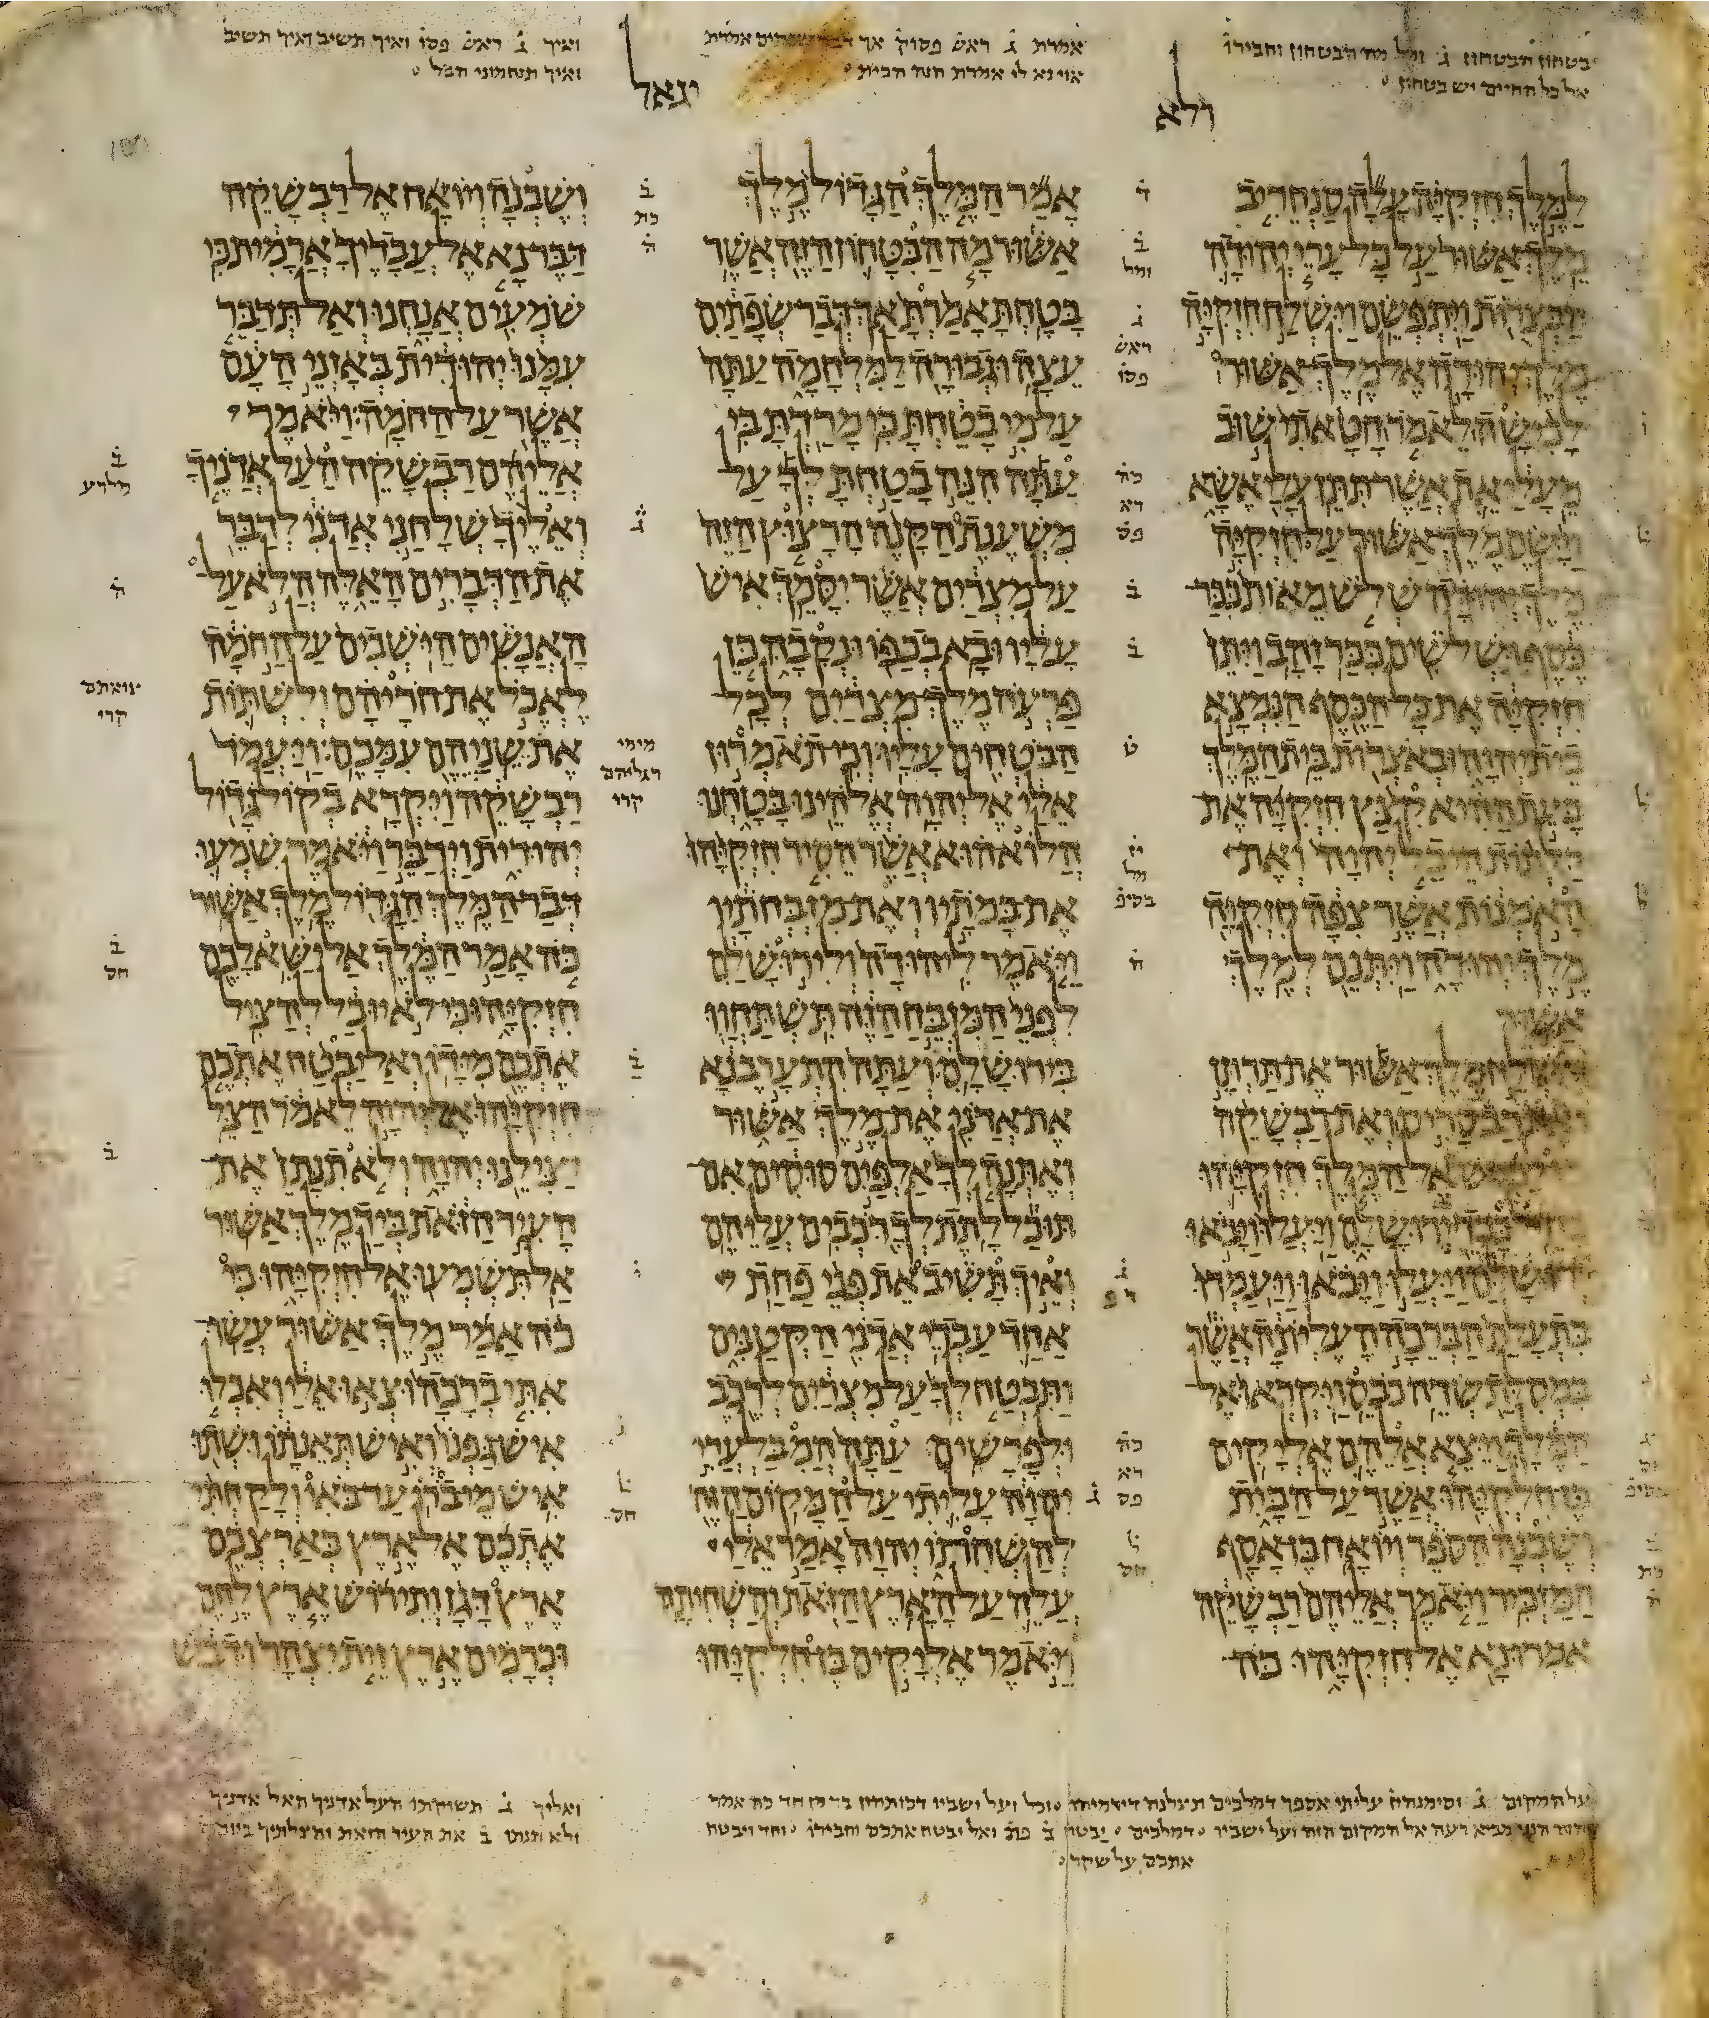 בטחון הבטחון ג̇ ומל מה הבטחון וחביר
אל כל החיים יש בטחון
אמרת ג̇ ראש פסוק אך דבר שפתים אמרת
אוי נא לי אמרת הנה הבית
ואיך ג̇ ראש פסו ואיך תשיב ואיך תשיב
ואיך תנחמוני הבל
ולא
יגאל
לַמֶּלֶךְ חִזְקִיָּה עָלָה סַנְחֵרִיב
מֶלֶךְ אַשּׁוּר עַל כָּל עָרֵי יְהוּדָה
הַבְּצֻרוֹת וַיִּתְפְּשֵׂם וַיִּשְׁלַח חִזְקִיָּה
מֶלֶךְ יְהוּדָה אֶל מֶלֶךְ אַשּׁוּר
לָכִישָׁה לֵאמֹר חָטָאתִי שׁוּב
מֵעָלַי אֵת אֲשֶׁר תִּתֵּן עָלַי אֶשָּׂא
וַיָּשֶׂם מֶלֶךְ אַשּׁוּר עַל חִזְקִיָּה
מֶלֶךְ יְהוּדָה שְׁלֹשׁ מֵאוֹת כִּכַּר
כֶּסֶף וּשְׁלֹשִׁים כִּכַּר זָהָב וַיִּתֵּן
חִזְקִיָּה אֶת כָּל הַכֶּסֶף הַנִּמְצָא
בֵית יְהוָה וּבְאֹצְרוֹת בֵּית הַמֶּלֶךְ
בָּעֵת הַהִיא קִצַּץ חִזְקִיָּה אֶת
דַּלְתוֹת הֵיכַל יְהוָה וְאֶת
הָאֹמְנוֹת אֲשֶׁר צִפָּה חִזְקִיָּה
מֶלֶךְ יְהוּדָה וַיִּתְּנֵם לְמֶלֶךְ
אַשּׁוּר
וַיִּשְׁלַח מֶלֶךְ אַשּׁוּר אֶת תַּרְתָּן
וְאֶת רַב סָרִיס וְאֶת רַב שָׁקֵה
מִן לָכִישׁ אֶל הַמֶּלֶךְ חִזְקִיָּהוּ
בְּחֵיל כָּבֵד יְרוּשָׁלִָם וַיַּעֲלוּ וַיָּבֹאוּ
יְרוּשָׁלִַם וַיַּעֲלוּ וַיָּבֹאוּ וַיַּעַמְדוּ
בִּתְעָלַת הַבְּרֵכָה הָעֶלְיוֹנָה אֲשֶׁר
בִּמְסִלַּת שְׂדֵה כֹבֵס וַיִּקְרְאוּ אֶל
הַמֶּלֶךְ וַיֵּצֵא אֲלֵהֶם אֶלְיָקִים
בֶּן חִלְקִיָּהוּ אֲשֶׁר עַל הַבָּיִת
וְשֶׁבְנָה הַסֹּפֵר וְיוֹאָח בֶּן אָסָף
הַמַּזְכִּיר וַיֹּאמֶר אֲלֵיהֶם רַב שָׁקֵה
אִמְרוּ נָא אֶל חִזְקִיָּהוּ כֹּה
אָמַר הַמֶּלֶךְ הַגָּדוֹל מֶלֶךְ
אַשּׁוּר מָה הַבִּטָּחוֹן הַזֶּה אֲשֶׁר
בָּטָחְתָּ אָמַרְתָּ אַךְ דְּבַר שְׂפָתַיִם
עֵצָה וּגְבוּרָה לַמִּלְחָמָה עַתָּה
עַל מִי בָטַחְתָּ כִּי מָרַדְתָּ בִּי
עַתָּה הִנֵּה בָטַחְתָּ לְּךָ עַל
מִשְׁעֶנֶת הַקָּנֶה הָרָצוּץ הַזֶּה
עַל מִצְרַיִם אֲשֶׁר יִסָּמֵךְ אִישׁ
עָלָיו וּבָא בְכַפּוֹ וּנְקָבָהּ כֵּן
פַּרְעֹה מֶלֶךְ מִצְרַיִם לְכָל
הַבֹּטְחִים עָלָיו וְכִי תֹאמְרוּן
אֵלַי אֶל יְהוָה אֱלֹהֵינוּ בָּטָחְנוּ
הֲלוֹא הוּא אֲשֶׁר הֵסִיר חִזְקִיָּהוּ
אֶת בָּמֹתָיו וְאֶת מִזְבְּחֹתָיו
וַיֹּאמֶר לִיהוּדָה וְלִירוּשָׁלִַם
לִפְנֵי הַמִּזְבֵּחַ הַזֶּה תִּשְׁתַּחֲווּ
בִּירוּשָׁלִָם וְעַתָּה הִתְעָרֶב נָא
אֶת אֲדֹנִי אֶת מֶלֶךְ אַשּׁוּר
וְאֶתְּנָה לְךָ אַלְפַּיִם סוּסִים אִם
תּוּכַל לָתֶת לְךָ רֹכְבִים עֲלֵיהֶם
וְאֵיךְ תָּשִׁיב אֵת פְּנֵי פַחַת
אַחַד עַבְדֵי אֲדֹנִי הַקְּטַנִּים
וַתִּבְטַח לְךָ עַל מִצְרַיִם לְרֶכֶב
וּלְפָרָשִׁים עַתָּה הֲמִבַּלְעֲדֵי
יְהוָה עָלִיתִי עַל הַמָּקוֹם הַזֶּה
לְהַשְׁחִתוֹ יְהוָה אָמַר אֵלַי
עֲלֵה עַל הָאָרֶץ הַזֹּאת וְהַשְׁחִיתָהּ
וַיֹּאמֶר אֶלְיָקִים בֶּן חִלְקִיָּהוּ
וְשֶׁבְנָה וְיוֹאָח אֶל רַב שָׁקֵה
דַּבֶּר נָא אֶל עֲבָדֶיךָ אֲרָמִית כִּי
שֹׁמְעִים אֲנָחְנוּ וְאַל תְּדַבֵּר
עִמָּנוּ יְהוּדִית בְּאָזְנֵי הָעָם
אֲשֶׁר עַל הַחֹמָה וַיֹּאמֶר
אֲלֵיהֶם רַב שָׁקֵה הַעַל אֲדֹנֶיךָ
וְאֵלֶיךָ שְׁלָחַנִי אֲדֹנִי לְדַבֵּר
אֶת הַדְּבָרִים הָאֵלֶּה הֲלֹא עַל
הָאֲנָשִׁים הַיֹּשְׁבִים עַל הַחֹמָה
לֶאֱכֹל אֶת חֹרֵיהֶם וְלִשְׁתּוֹת
אֶת שֵׁנֵיהֶם עִמָּכֶם וַיַּעֲמֹד
רַב שָׁקֵה וַיִּקְרָא בְקוֹל גָּדוֹל
יְהוּדִית וַיְדַבֵּר וַיֹּאמֶר שִׁמְעוּ
דְּבַר הַמֶּלֶךְ הַגָּדוֹל מֶלֶךְ אַשּׁוּר
כֹּה אָמַר הַמֶּלֶךְ אַל יַשִּׁא לָכֶם
חִזְקִיָּהוּ כִּי לֹא יוּכַל לְהַצִּיל
אֶתְכֶם מִיָּדוֹ וְאַל יַבְטַח אֶתְכֶם
חִזְקִיָּהוּ אֶל יְהוָה לֵאמֹר הַצֵּל
יַצִּילֵנוּ יְהוָה וְלֹא תִנָּתֵן אֶת
הָעִיר הַזֹּאת בְּיַד מֶלֶךְ אַשּׁוּר
אַל תִּשְׁמְעוּ אֶל חִזְקִיָּהוּ כִּי
כֹה אָמַר מֶלֶךְ אַשּׁוּר עֲשׂוּ
אִתִּי בְרָכָה וּצְאוּ אֵלַי וְאִכְלוּ
אִישׁ גַּפְנוֹ וְאִישׁ תְּאֵנָתוֹ וּשְׁתוּ
אִישׁ מֵי בֹרוֹ עַד בֹּאִי וְלָקַחְתִּי
אֶתְכֶם אֶל אֶרֶץ כְּאַרְצְכֶם
אֶרֶץ דָּגָן וְתִירוֹשׁ אֶרֶץ לֶחֶם
וּכְרָמִים אֶרֶץ זֵית יִצְהָר וּדְבַשׁ
מימי
רגליהם
קרי
צואתם
קרי
מלרע
על המקום ג̇ וסימנהון עליתי אספר דמלכים תצילנה דירמיהו וכל ועל ישביו דכותהון בר מן חד כה אמר
יהוה הנני מביא רעה אל המקום הזה ועל ישביו דמלכים יבטח ב̇ פת ואל יבטח אתכם וחביר וחד ויבטח
אתכם על שקר
ואליך ג̇ תשוקתו העל אדניך האל אדניך
ולא תנתן ב̇ את העיר הזאת והצלתיך ביום